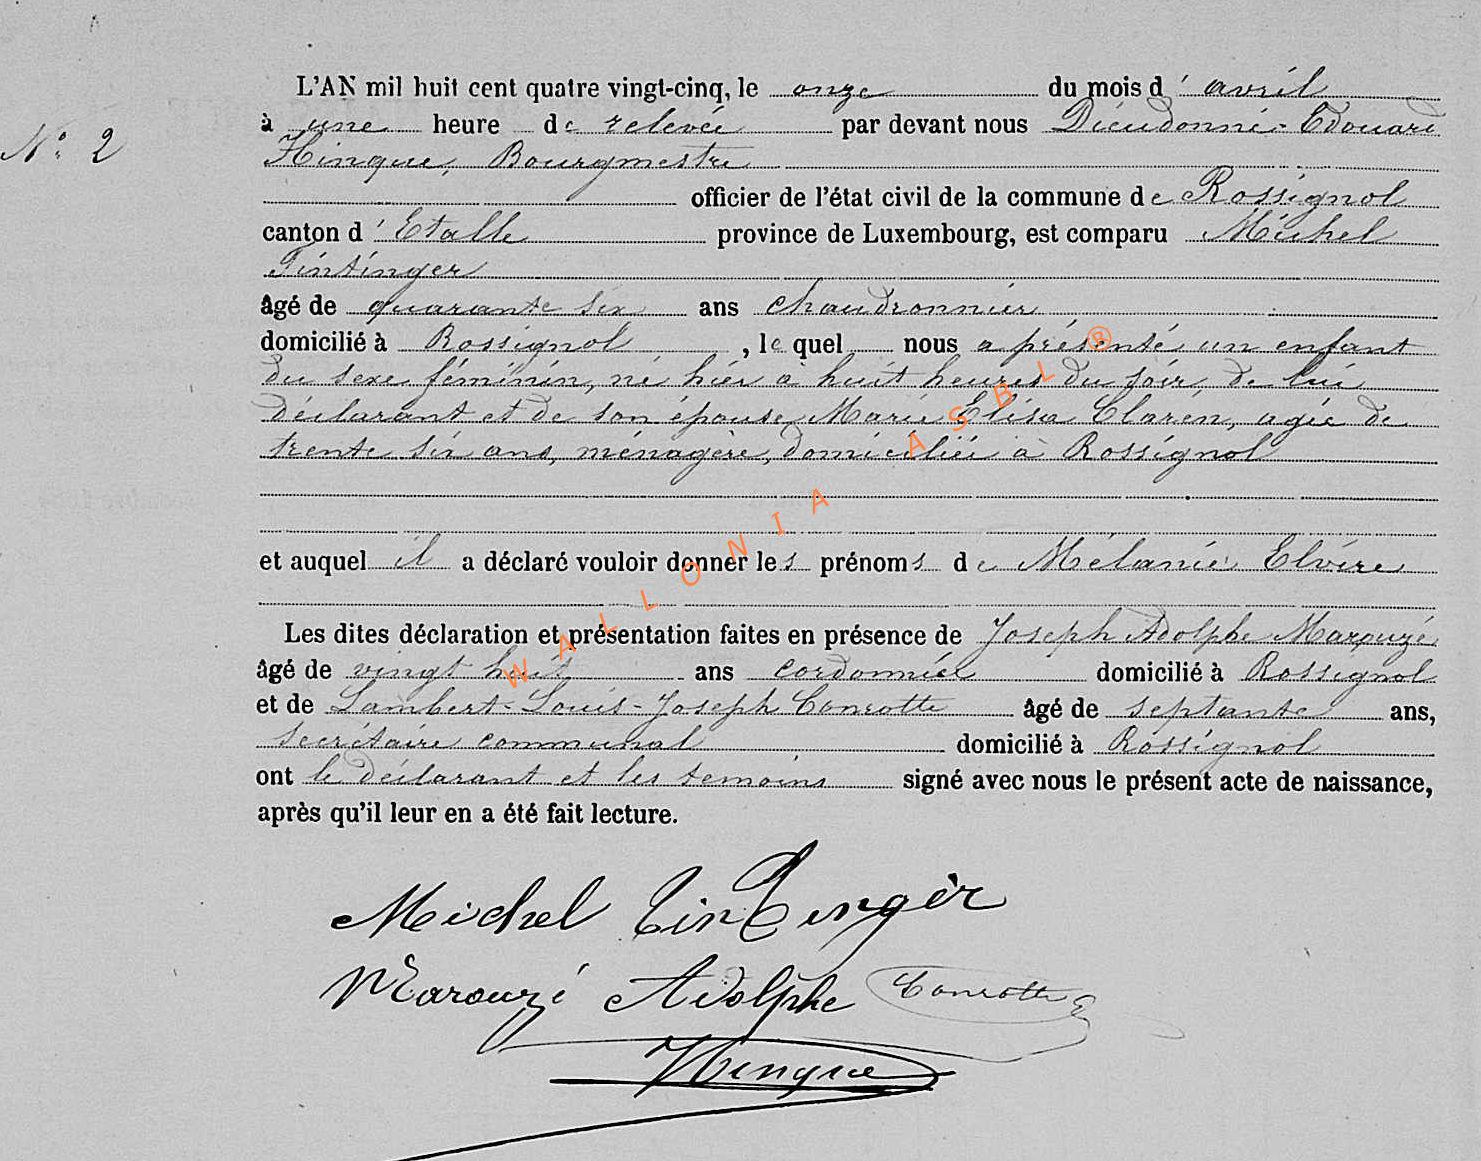 L'AN mil huit cent quatre vingt-cinq, le onze du mois d'avril
à une heure de relevée par devant nous Dieudonné-Edouard
N° 2
Hinque, Bourgmestre
officier de l'état civil de la commune de Rossignol
canton d'Etalle province de Luxembourg, est comparu Michel
Tintinger
âgé de quarante six ans chaudronnier
domicilié à Rossignol, le quel nous a présenté un enfant
du sexe féminin, né hier à huit heures du soir de lui
déclarant et de son épouse Marie Elisa Claren, agée de
trente six ans, ménagère, domiciliée à Rossignol
et auquel il a déclaré vouloir donner les prénoms de Mélanie Elvire
Les dites déclaration et présentation faites en présence de Joseph Adolphe Marouzé
âgé de vingt huit ans cordonnier domicilié à Rossignol
et de Lambert-Louis-Joseph Conrotte âgé de septante ans,
secrétaire communal domicilié à Rossignol
ont le déclarant et les temoins signé avec nous le présent acte de naissance,
après qu'il leur en a été fait lecture.
Michel Tintinger
Marouzé Adolphe Conrotte
Hinque
WALLONIA ASBL ®